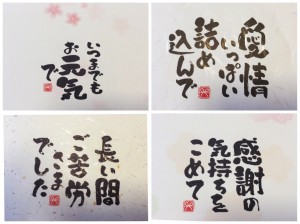 いつまでも
お元気
で
愛情
いっぱい
詰め
込んで
長い間
ご苦労
さま
でした
感謝の
気持ちを
こめて